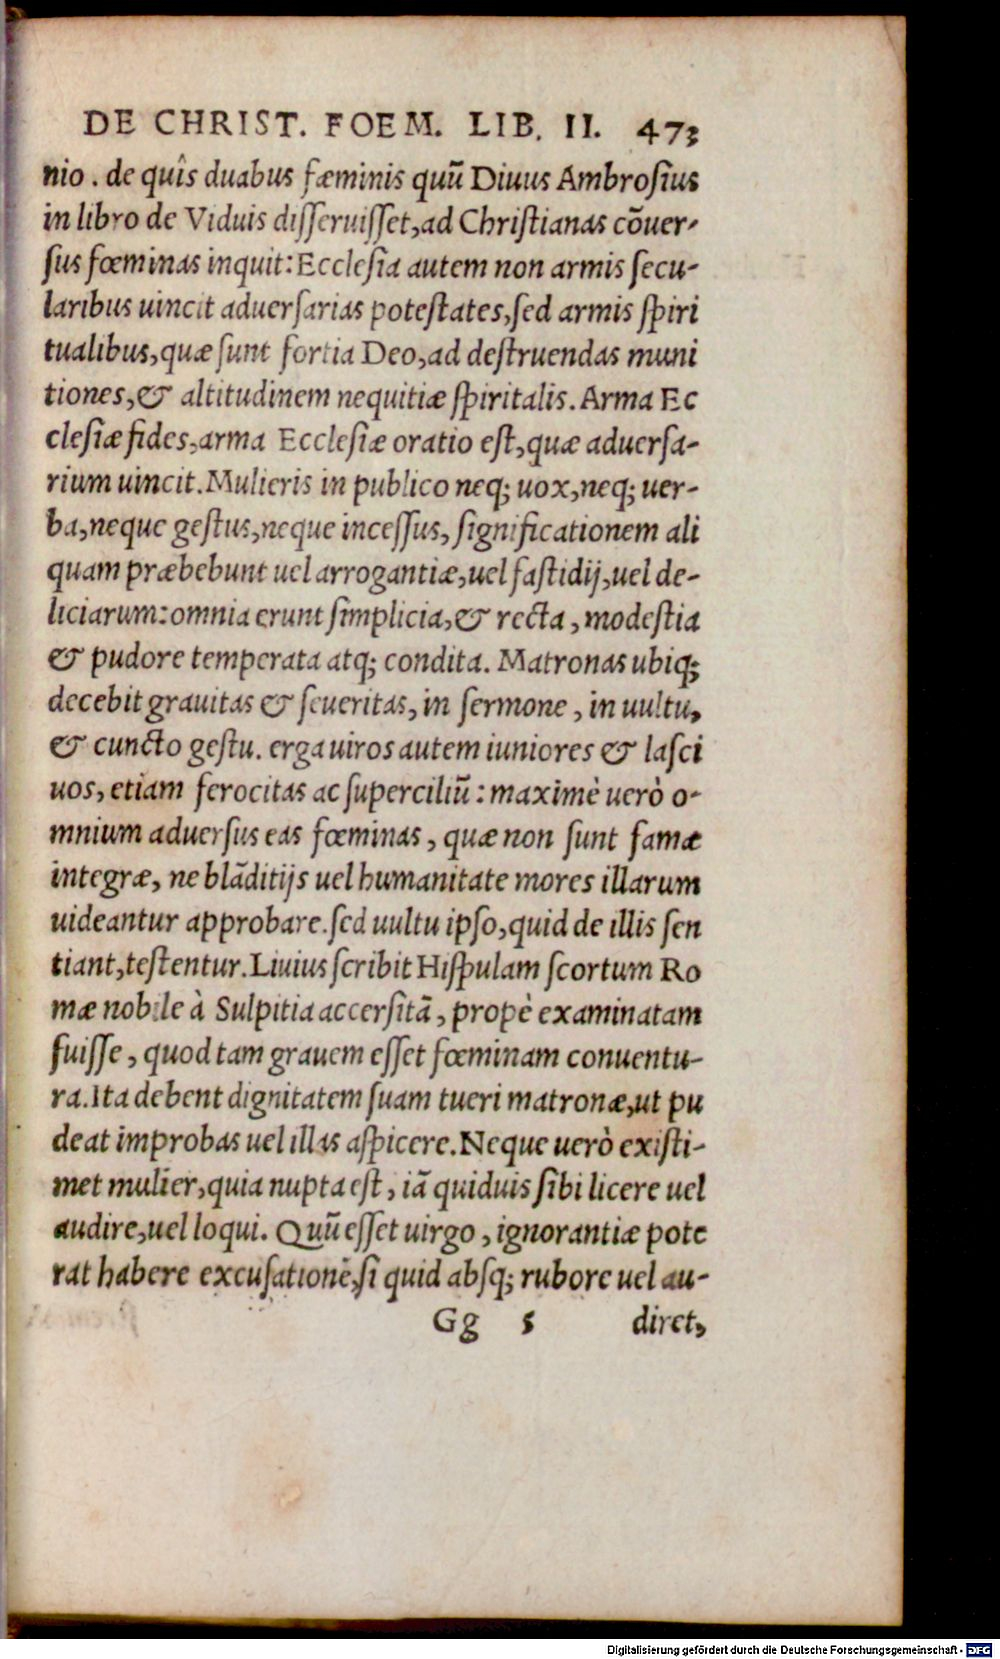 DE CHRIST. FOEM. LIB. II. 473
nio. de quîs duabus fæminis quũ Diuus Ambroſius
in libro de Viduis diſſeruiſſet, ad Chriſtianas cõuer-
ſus fœminas inquit: Eccleſia autem non armis ſecu-
laribus uincit aduerſarias poteſtates, ſed armis ſpiri
tualibus, quæ ſunt fortia Deo, ad deſtruendas muni
tiones, & altitudinem nequitiæ ſpiritalis. Arma Ec
cleſiæ fides, arma Eccleſiæ oratio eſt, quæ aduerſa-
rium uincit. Mulieris in publico neq; uox, neq; uer-
ba, neque geſtus, neque inceſſus, ſignificationem ali
quam præbebunt uel arrogantiæ, uel faſtidij, uel de-
liciarum: omnia erunt ſimplicia, & recta, modeſtia
& pudore temperata atq; condita. Matronas ubiq;
decebit grauitas & ſeueritas, in ſermone, in uultu,
& cuncto geſtu. erga uiros autem iuniores & laſci
uos, etiam ferocitas ac ſuperciliũ: maximè uerò o-
mnium aduerſus eas fœminas, quæ non ſunt famæ
integræ, ne blãditijs uel humanitate mores illarum
uideantur approbare. ſed uultu ipſo, quid de illis ſen
tiant, teſtentur. Liuius ſcribit Hiſpulam ſcortum Ro
mæ nobile à Sulpitia accerſitã, propè examinatam
fuiſſe, quod tam grauem eſſet fœminam conuentu-
ra. Ita debent dignitatem ſuam tueri matronæ, ut pu
deat improbas uel illas aſpicere. Neque uerò exiſti-
met mulier, quia nupta eſt, iã quiduis ſibi licere uel
audire, uel loqui. Quũ eſſet uirgo, ignorantiæ pote
rat habere excuſationẽ, ſi quid abſq; rubore uel au-
Gg 5 diret,
Digitalisierung gefördert durch die Deutsche Forschungsgemeinschaft - DFG